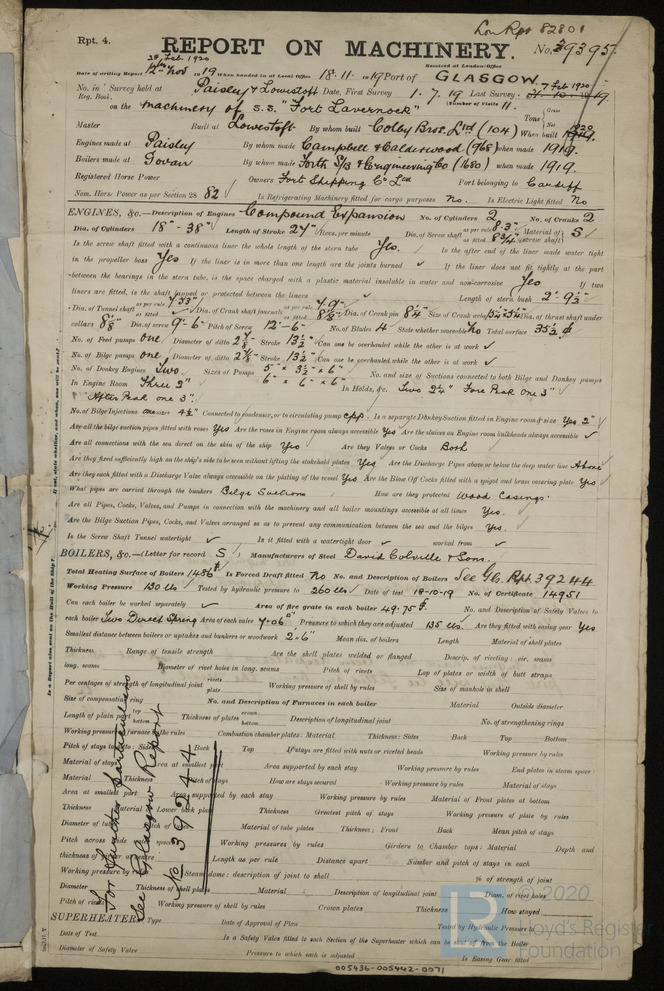 Lon Rpt 82801
Rpt. 4.
REPORT ON MACHINERY.
No. 39395
28 Feb 1920
Received at London Office
Date of writing Report 12th Nov 1919 When handed in at Local Office 18.11. 1919 Port of GLASGOW
7 Feb 1920
No. in Survey held at Paisley & Lowestoft Date, First Survey 1.7.19 Last Survey
Reg. Book.
on the machinery of s.s. "Fort Lavernock" (Number of Visits 11.
Tons Gross Net
Master Built at Lowestoft By whom built Colby Bros. Ltd (104) When built 1920
Engines made at Paisley By whom made Campbell & Calderwood (968) when made 1919.
Boilers made at Govan By whom made Forth S/B & Engineering Co (1680) when made 1919.
Registered Horse Power Owners Fort Shipping Co Ltd Port belonging to Cardiff
Nom. Horse Power as per Section 28 82 Is Refrigerating Machinery fitted for cargo purposes No. Is Electric Light fitted No
ENGINES, &c.—Description of Engines Compound Expansion No. of Cylinders 2 No. of Cranks 2
Dia. of Cylinders 18" - 38" Length of Stroke 27" Revs. per minute Dia. of Screw shaft as per rule 8.3" as fitted 8 3/4" Material of screw shaft S
Is the screw shaft fitted with a continuous liner the whole length of the stern tube Yes. Is the after end of the liner made water tight
in the propeller boss Yes If the liner is in more than one length are the joints burned ✓ If the liner does not fit tightly at the part
between the bearings in the stern tube, is the space charged with a plastic material insoluble in water and non-corrosive Yes If two
liners are fitted, is the shaft lapped or protected between the liners ✓ Length of stern bush 2'-9½"
Dia. of Tunnel shaft as per rule 7.53" as fitted ✓ Dia. of Crank shaft journals as per rule 7.9" as fitted 8 1/8" Dia. of Crank pin 8¼" Size of Crank webs Dia. of thrust shaft under
collars 8 1/8" Dia. of screw 9'-6" Pitch of Screw 12'-6" No. of Blades 4 State whether moveable No Total surface 35½ ft
No. of Feed pumps one Diameter of ditto 2 7/8" Stroke 13½" Can one be overhauled while the other is at work ✓
No. of Bilge pumps one Diameter of ditto 2 7/8" Stroke 13½" Can one be overhauled while the other is at work ✓
No. of Donkey Engines Two. Sizes of Pumps 5" × 3½" × 6" 6" × 6" × 6" No. and size of Suctions connected to both Bilge and Donkey pumps
In Engine Room Three 2" In Holds, &c. Two 2¼" Fore Peak one 3"
After Peak one 3".
No. of Bilge Injections one sizes 4½" Connected to condenser, or to circulating pump C.P.P. Is a separate Donkey Suction fitted in Engine room & size Yes 2"
Are all the bilge suction pipes fitted with roses Yes Are the roses in Engine room always accessible Yes Are the sluices on Engine room bulkheads always accessible ✓
Are all connections with the sea direct on the skin of the ship Yes Are they Valves or Cocks Both
Are they fixed sufficiently high on the ship's side to be seen without lifting the stokehold plates Yes Are the Discharge Pipes above or below the deep water line Above
Are they each fitted with a Discharge Valve always accessible on the plating of the vessel Yes Are the Blow Off Cocks fitted with a spigot and brass covering plate Yes
What pipes are carried through the bunkers Bilge Suctions How are they protected Wood Casings.
Are all Pipes, Cocks, Valves, and Pumps in connection with the machinery and all boiler mountings accessible at all times Yes.
Are the Bilge Suction Pipes, Cocks, and Valves arranged so as to prevent any communication between the sea and the bilges Yes.
Is the Screw Shaft Tunnel watertight ✓ Is it fitted with a watertight door ✓ worked from ✓
BOILERS, &c.—(Letter for record S) Manufacturers of Steel David Colville & Sons.
Total Heating Surface of Boilers 1486 ft Is Forced Draft fitted No No. and Description of Boilers See Gls. Rpt. 39244
Working Pressure 130 lbs Tested by hydraulic pressure to 260 lbs Date of test 18-10-19 No. of Certificate 14951
Can each boiler be worked separately ✓ Area of fire grate in each boiler 49.75 ft No. and Description of Safety Valves to
each boiler Two Direct Spring Area of each valve 7.06 Pressure to which they are adjusted 135 lbs. Are they fitted with easing gear Yes
Smallest distance between boilers or uptakes and bunkers or woodwork 2'.6" Mean dia. of boilers Length Material of shell plates
Thickness Range of tensile strength Are the shell plates welded or flanged Descrip. of riveting: cir. seams
long. seams Diameter of rivet holes in long. seams Pitch of rivets Lap of plates or width of butt straps
Per centages of strength of longitudinal joint rivets plate Working pressure of shell by rules Size of manhole in shell
Size of compensating ring No. and Description of Furnaces in each boiler Material Outside diameter
Length of plain part top bottom Thickness of plates crown bottom Description of longitudinal joint No. of strengthening rings
Working pressure of furnace by the rules Combustion chamber plates: Material Thickness: Sides Back Top Bottom
Pitch of stays to ditto: Sides Back Top If stays are fitted with nuts or riveted heads Working pressure by rules
Material of stays Area at smallest part Area supported by each stay Working pressure by rules End plates in steam space:
Material Thickness Pitch of stays How are stays secured Working pressure by rules Material of stays
Area at smallest part Area supported by each stay Working pressure by rules Material of Front plates at bottom
Thickness Material of Lower back plate Thickness Greatest pitch of stays Working pressure of plate by rules
Diameter of tubes Pitch of tubes Material of tube plates Thickness: Front Back Mean pitch of stays
Pitch across wide water spaces Working pressures by rules Girders to Chamber tops: Material Depth and
thickness of girder at centre Length as per rule Distance apart Number and pitch of stays in each
Working pressure by rules Steam dome: description of joint to shell % of strength of joint
Diameter Thickness of shell plates Material Description of longitudinal joint Diam. of rivet holes
Pitch of rivets Working pressure of shell by rules Crown plates Thickness How stayed
For further particulars
See Glasgow Report
No 39244
SUPERHEATER. Type Date of Approval of Plan Tested by Hydraulic Pressure to
Date of Test Is a Safety Valve fitted to each Section of the Superheater which can be shut off from the Boiler
Diameter of Safety Valve Pressure to which each is adjusted Is Easing Gear fitted
005436-005442-0071
© 2020
Lloyd's Register
Foundation